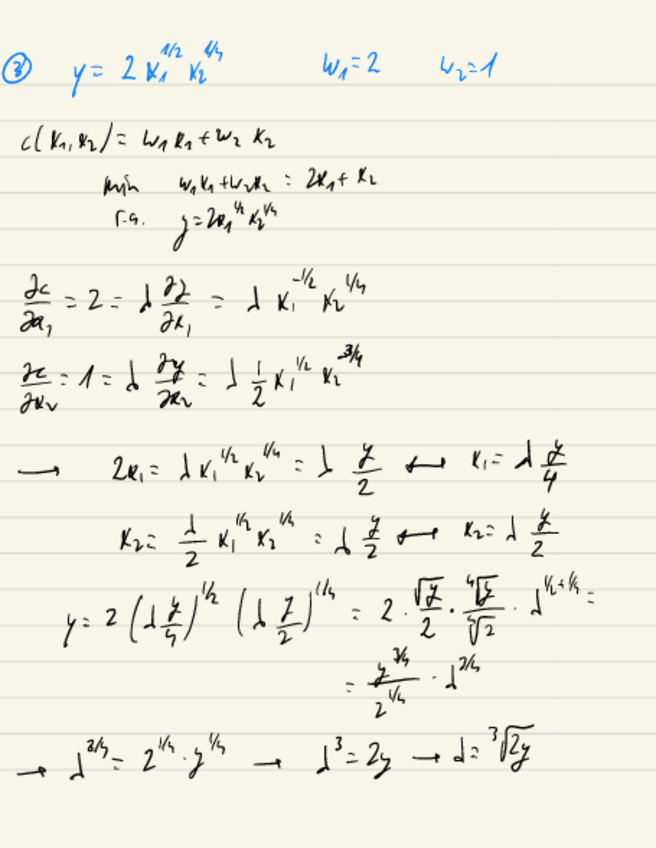 ③ y = 2 x₁^{1/2} x₂^{1/4} w₁=2 w₂=1
c(x₁,x₂) = w₁x₁+w₂ x₂
min w₁x₁+w₂x₂ = 2x₁+ x₂
r.a. y = 2x₁^{1/2} x₂^{1/4}
∂c/∂x₁ = 2 = λ ∂y/∂x₁ = λ x₁^{-1/2} x₂^{1/4}
∂c/∂x₂ = 1 = λ ∂y/∂x₂ = λ 1/2 x₁^{1/2} x₂^{-3/4}
→ 2x₁ = λ x₁^{1/2} x₂^{1/4} = λ y/2 ↔ x₁ = λ y/4
x₂ = λ/2 x₁^{1/2} x₂^{1/4} = λ y/2 ↔ x₂ = λ y/2
y = 2 (λ y/4)^{1/2} (λ y/2)^{1/4} = 2 · √y/2 · ⁴√y/⁴√2 · λ^{1/2+1/4} =
= y^{3/4}/2^{1/4} · λ^{3/4}
→ λ^{3/4} = 2^{1/4} · y^{1/4} → λ³ = 2y → λ = ³√2y